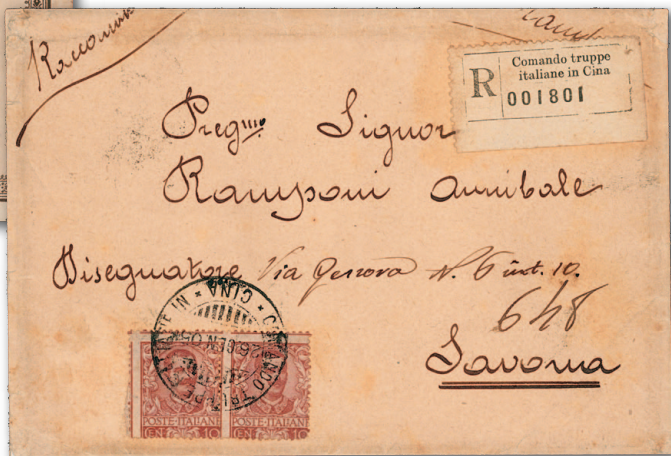 Raccoman
Comando truppe
italiane in Cina
R 001801
Preg.mo Signor
Ramponi Annibale
Disegnatore Via Genova N. 6 int. 10.
648
Savona
COMANDO TRUPPE ITALIANE IN CINA
26 GEN 05
POSTE·ITALIANE POSTE·ITALIANE
CEN 10 CEN 10